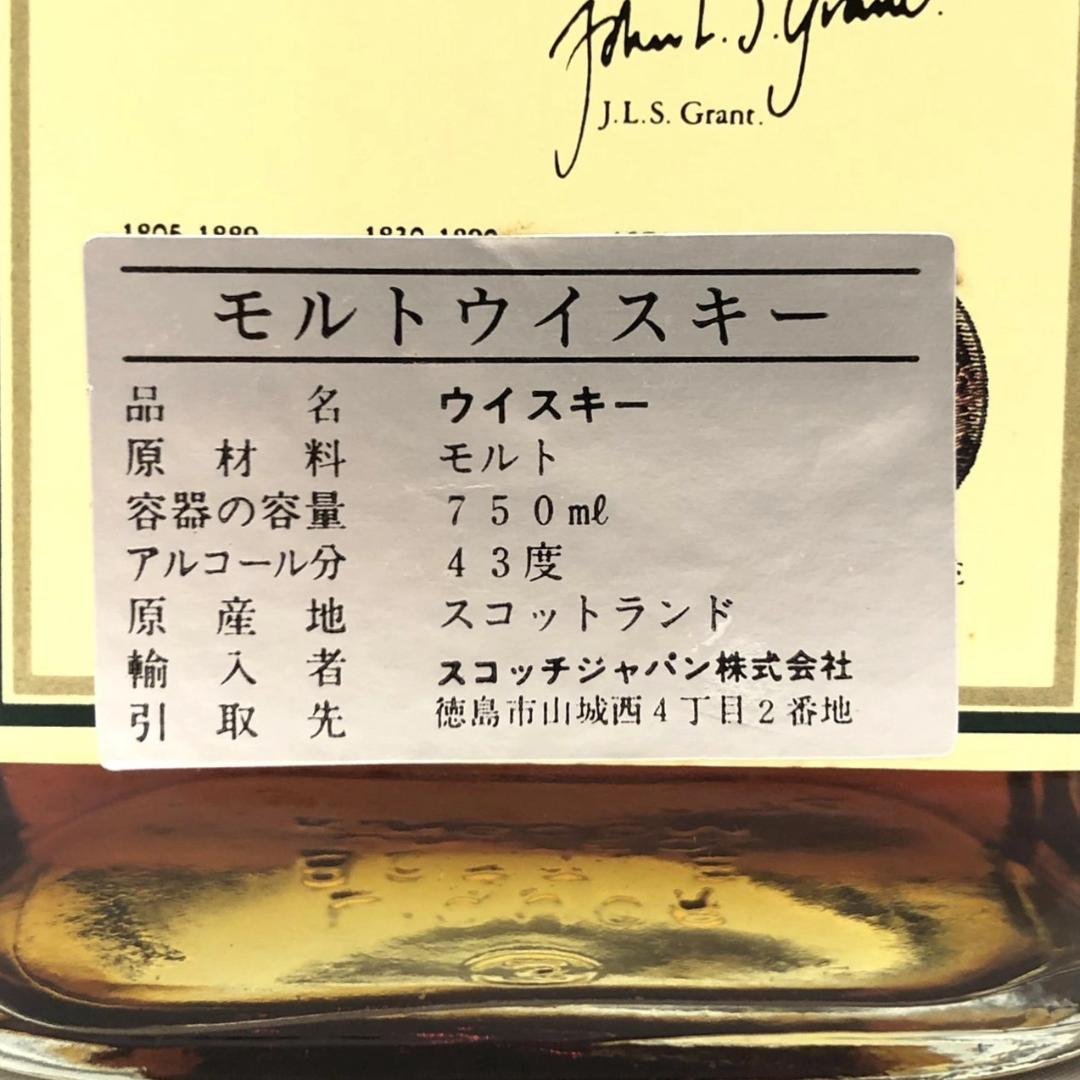 John L. S. Grant.
J.L.S. Grant.
1805-1889 1830-1890
モルトウイスキー
品名 ウイスキー
原材料 モルト
容器の容量 750ml
アルコール分 43度
原産地 スコットランド
輸入者 スコッチジャパン株式会社
引取先 徳島市山城西4丁目2番地